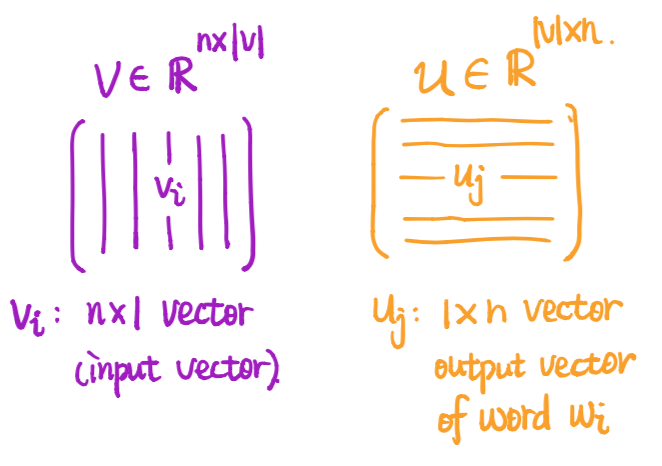 V ∈ ℝ^{n×|V|}
v_i
v_i : n×1 vector
(input vector).
U ∈ ℝ^{|V|×n}.
u_j
u_j : 1×n vector
output vector
of word w_i